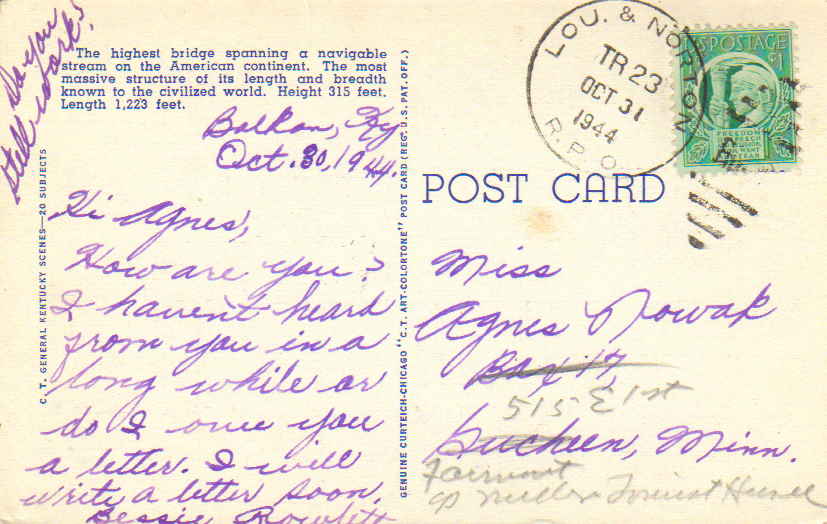 Do you
still work?
The highest bridge spanning a navigable
stream on the American continent. The most
massive structure of its length and breadth
known to the civilized world. Height 315 feet.
Length 1,223 feet.
Balkan, Ky
Oct. 30, 1944.
Hi Agnes,
How are you?
I havent heard
from you in a
long while or
do I owe you
a letter. I will
write a letter soon.
Bessie Rowlett
C. T. GENERAL KENTUCKY SCENES—20 SUBJECTS
GENUINE CURTEICH-CHICAGO "C.T. ART-COLORTONE" POST CARD (REG. U.S. PAT. OFF.)
LOU. & NORTON
TR 23
OCT 31
1944
R.P.O.
US POSTAGE
1
FREEDOM
OF SPEECH
AND RELIGION,
FROM WANT
AND FEAR
POST CARD
Miss
Agnes Nowak
Box 17
515 E 1st
Guckeen, Minn.
Fairmont